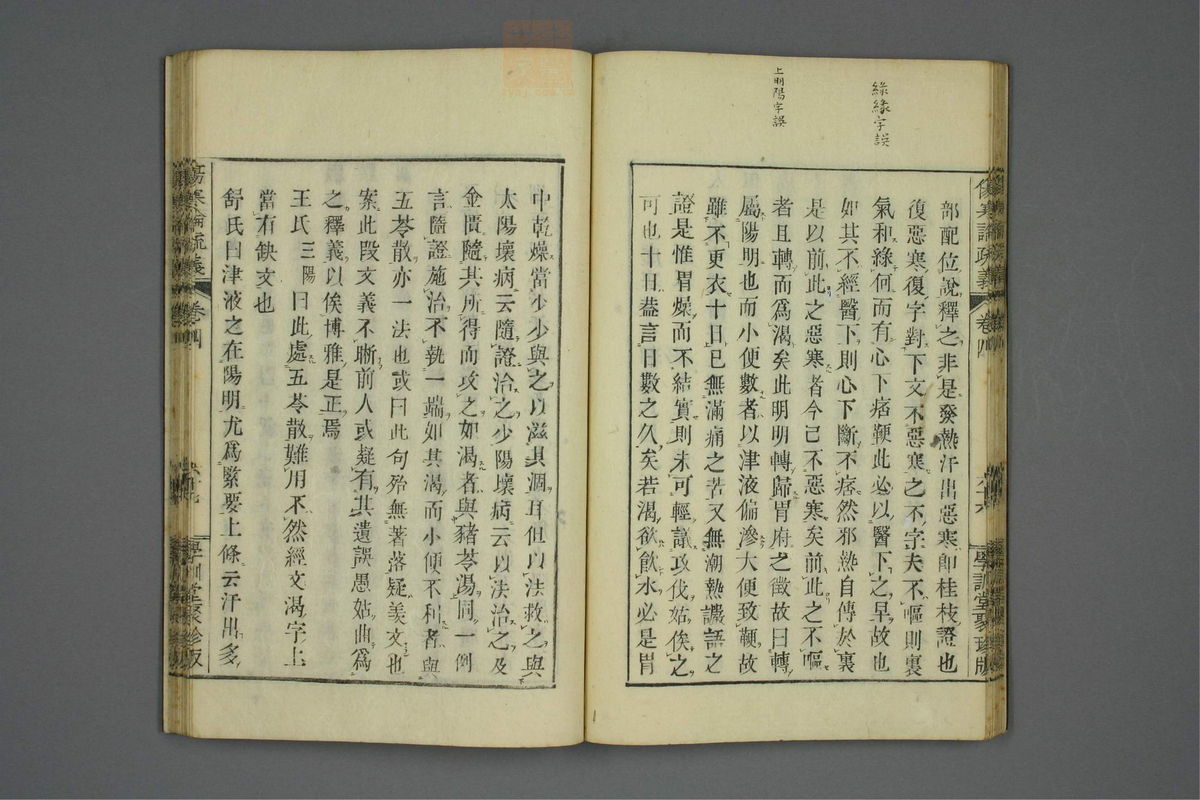 綠緣字誤
上明陽字誤
傷寒論疏義
卷四
學訓堂聚珍版
部配位說釋之非是發熱汗出惡寒卽桂枝證也
復惡寒復字對下文不惡寒之不字夫不嘔則裏
氣和綠何而有心下痞鞕此必以醫下之早故也
如其不經醫下則心下斷不痞然邪熱自傳於裏
是以前此之惡寒者今已不惡寒矣前此之不嘔
者且轉而爲渴矣此明明轉歸胃府之徵故曰轉
屬陽明也而小便數者以津液偏滲大便致鞕故
雖不更衣十日已無滿痛之苦又無潮熱讝語之
證是惟胃燥而不結實則未可輕議攻伐姑俟之
可也十日葢言日數之久矣若渴欲飮水必是胃
中乾燥當少少與之以滋其涸耳但以法救之與
太陽壞病云隨證治之少陽壞病云以法治之及
金匱隨其所得而攻之如渴者與豬苓湯同一例
言隨證施治不執一端如其渴而小便不利者與
五苓散亦一法也或曰此句殆無著落疑羨文也
案此段文義不晰前人或疑有其遺誤愚姑曲爲
之釋義以俟博雅是正焉
王氏三陽曰此處五苓散難用不然經文渴字上
當有缺文也
舒氏曰津液之在陽明尤爲緊要上條云汗出多
傷寒論疏義
卷四
學訓堂聚珍版